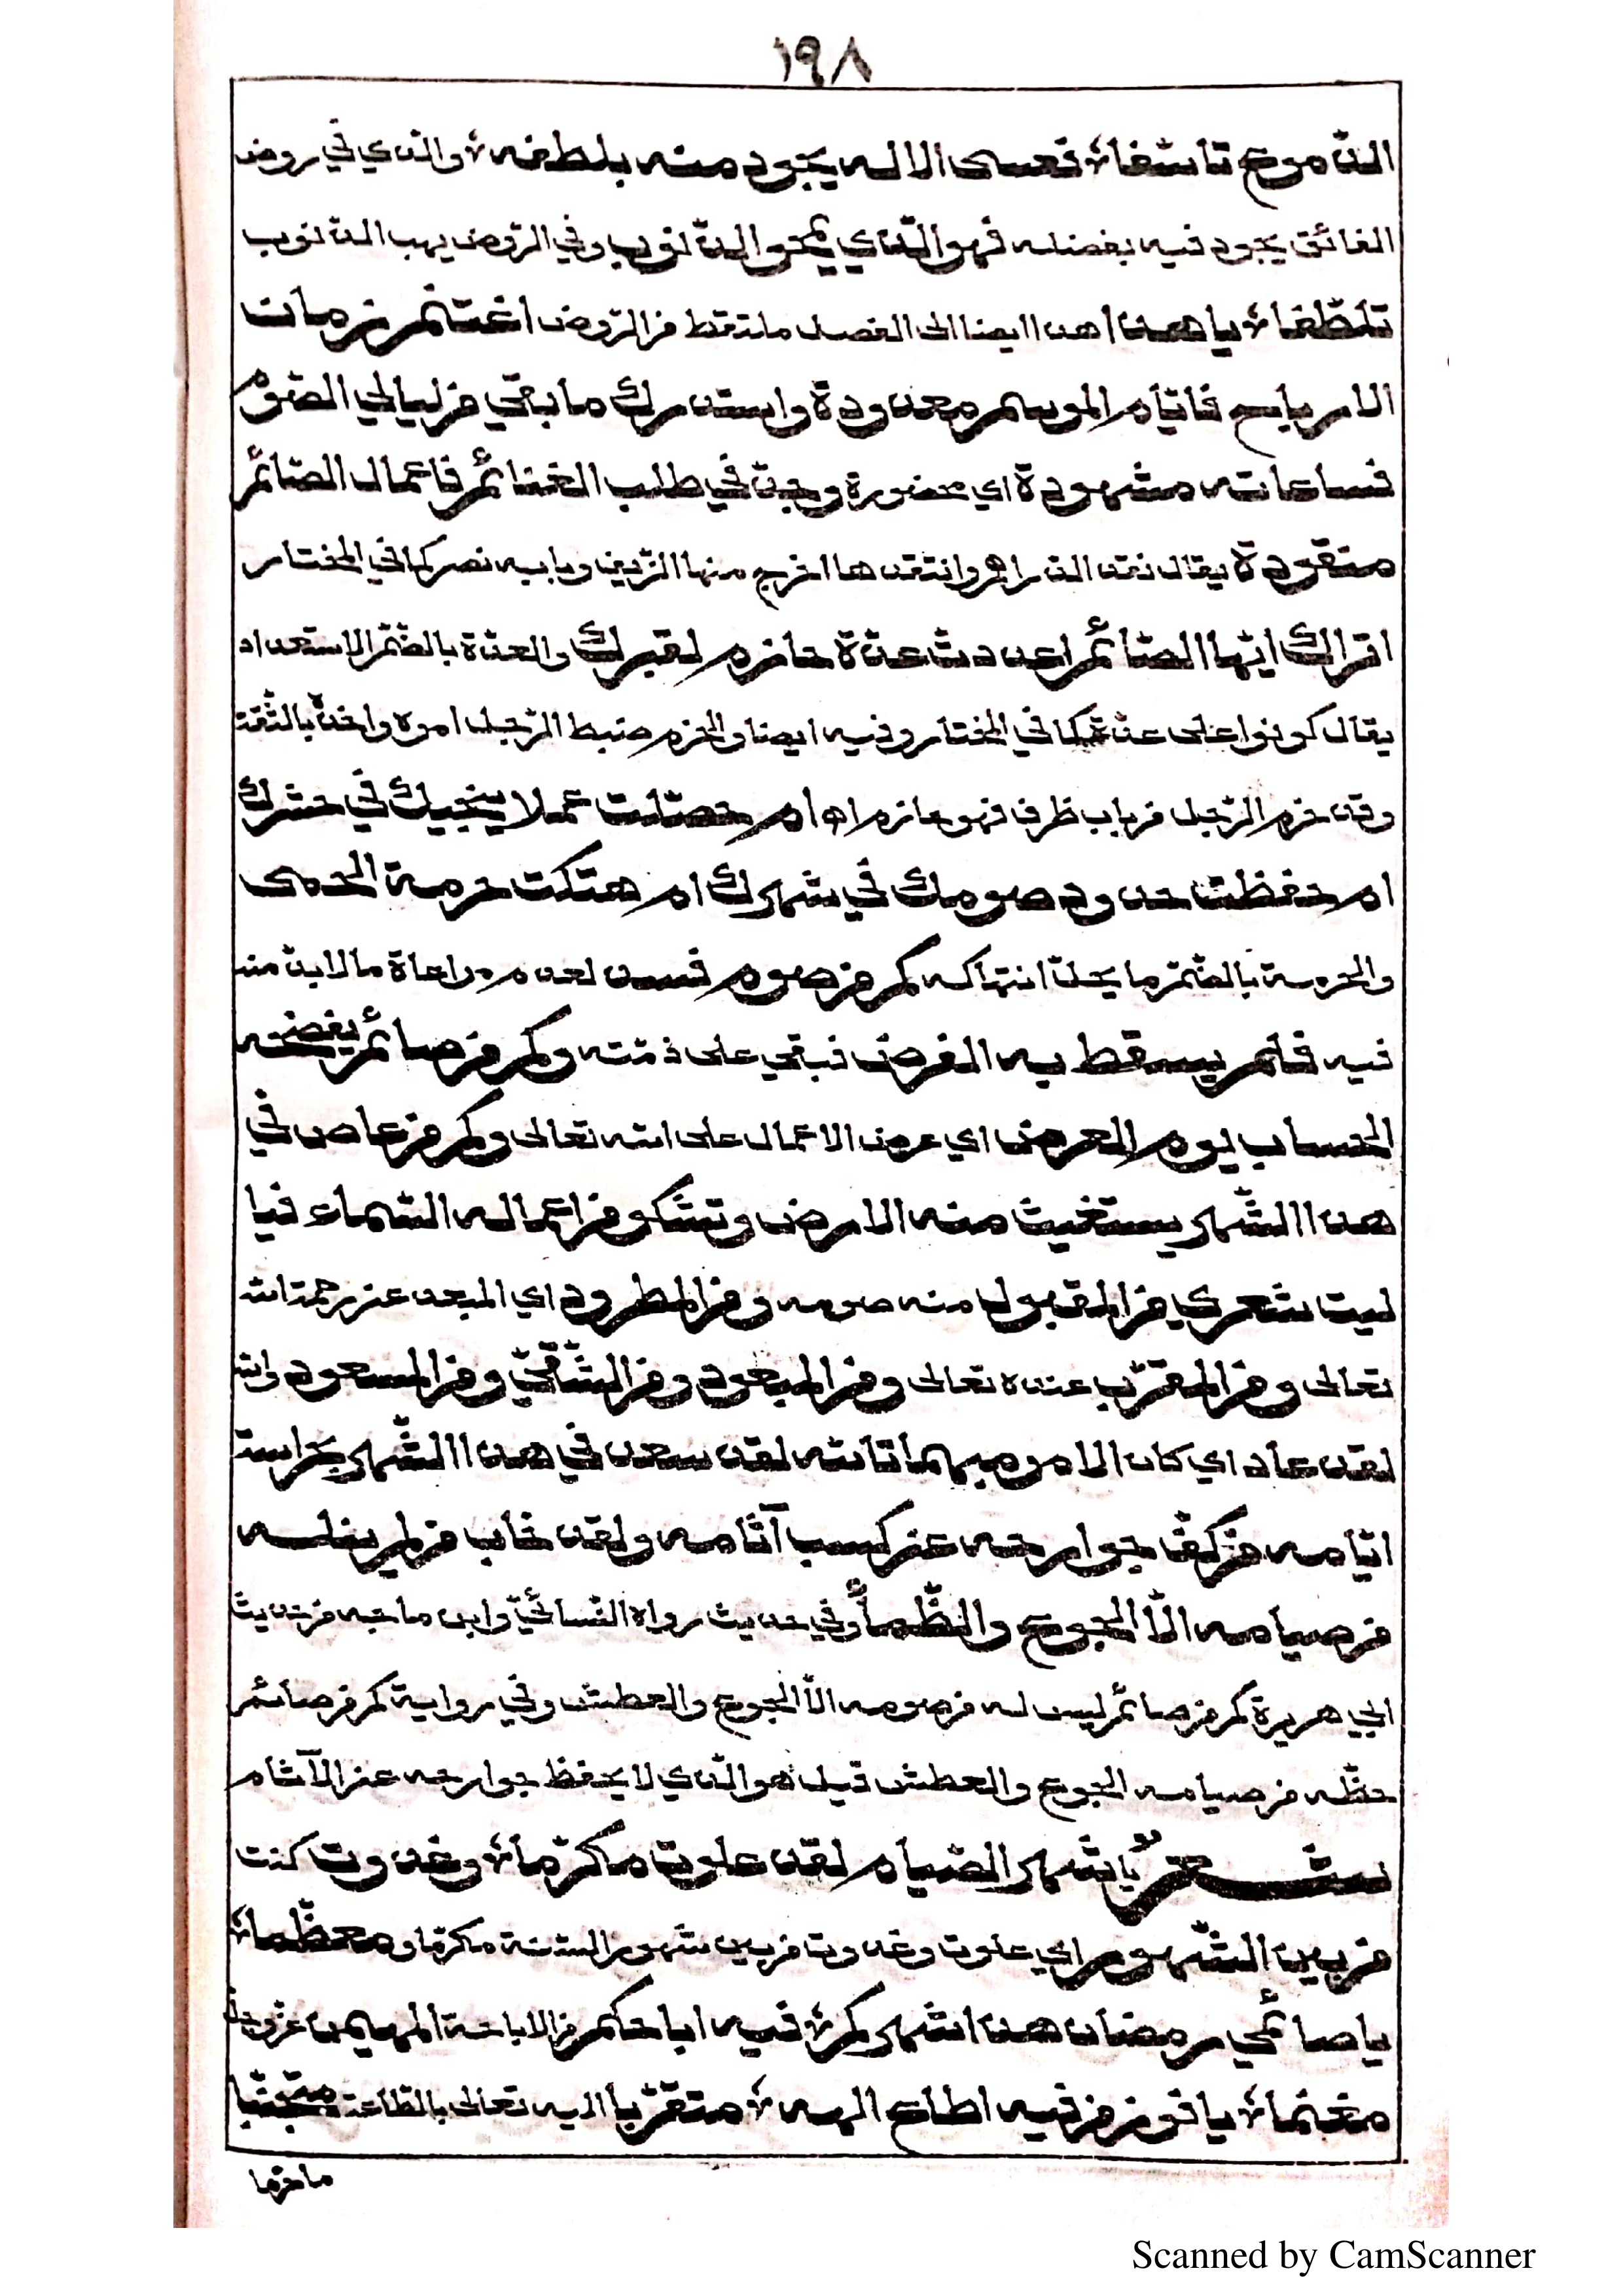 ١٩٨
الدموع تاسفا فعسى الاله يجود منه بلطفه والذي في روض
الفائق يجود فيه بفضله فهو الذي يمحو الذنوب وفي الروض يهب الذنوب
تلطفا يا هذا هذا ايضا الى الفصل ملتقط من الروض اغتنم زمان
الارباح فايام المواسم معدودة واستدرك ما بقي من ليالي الصوم
فساعاته مشهودة اي محضورة وجد في طلب الغنائم فاعمال الصائم
منقودة يقال نقد الدراهم وانتقدها اخرج منها الزيف وبابه نصر كما في المختار
اتراك ايها الصائم اعددت عدة حازم لقبرك والعدة بالضم الاستعداد
يقال كونوا على عدة كما في المختار وفيه ايضا والحزم ضبط الرجل امره واخذه بالثقة
وقد حزم الرجل من باب ظرف فهو حازم اه ام حصلت عملا ينجيك في حشرك
ام حفظت حدود صومك في شهرك ام هتكت حرمة الحمى
والحرمة بالضم ما يحل انتهاكه كم من صوم فسد لعدم مراعاة ما لا بد منه
فيه فلم يسقط به الفرض فبقي على ذمته وكم من صائم يفضحه
الحساب يوم العرض اي عرض الاعمال على الله تعالى وكم من عاص في
هذا الشهر يستغيث منه الارض وتشكو من اعماله السماء فيا
ليت شعري من المقبول منه صومه ومن المطرود اي المبعد عن رحمة الله
تعالى ومن المقرب عنده تعالى ومن المبعود ومن الشقي ومن المسعود والله
لقد عاد اي كان الامر مبهما تالله لقد سعد في هذا الشهر بحراسة
ايامه من كف جوارحه عن كسب آثامه ولقد خاب من لم ينله
من صيامه الا الجوع والظمأ وفي حديث رواه النسائي وابن ماجه من حديث
ابي هريرة كم من صائم ليس له من صومه الا الجوع والعطش وفي رواية كم من صائم
حظه من صيامه الجوع والعطش قيل هو الذي لا يحفظ جوارحه عن الآثام
شعر يا شهر الصيام لقد علوت مكرما وغدوت كنت
من بين الشهور اي علوت وغدوت من بين شهور السنة مكرما ومعظما
يا صائمي رمضان هذا شهركم فيه اباحكم من الاباحة المهيمن عز وجل
مغنما يا فوز من فيه اطاع الهه متقربا اليه تعالى بالطاعة متجنبا
ما حرما
Scanned by CamScanner